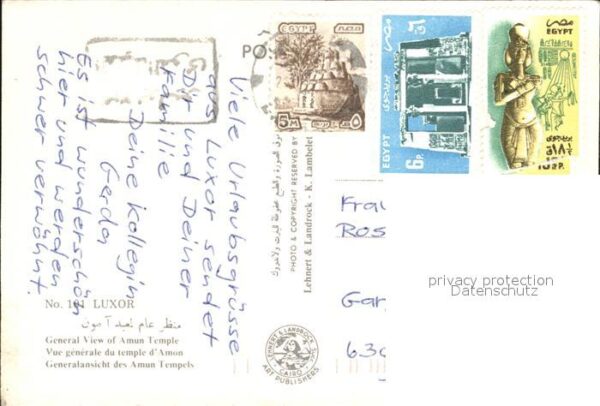 Viele Urlaubsgrüsse
aus Luxor sendet
Dir und Deiner
Familie
Deine Kollegin
Gerda
Es ist wunderschön
hier und werden
schwer verwöhnt.
No. 101 LUXOR
منظر عام لمعبد آمون
General View of Amun Temple
Vue générale du temple d'Amon
Generalansicht des Amun Tempels
PHOTO & COPYRIGHT RESERVED BY
Lehnert & Landrock - K. Lambelet
LEHNERT & LANDROCK
CAIRO
ART PUBLISHERS
POS
EGYPT مصر
5M ٥
مصر
EGYPT
6P.
مصر
EGYPT
Frau
Ros
Gar
630
privacy protection
Datenschutz